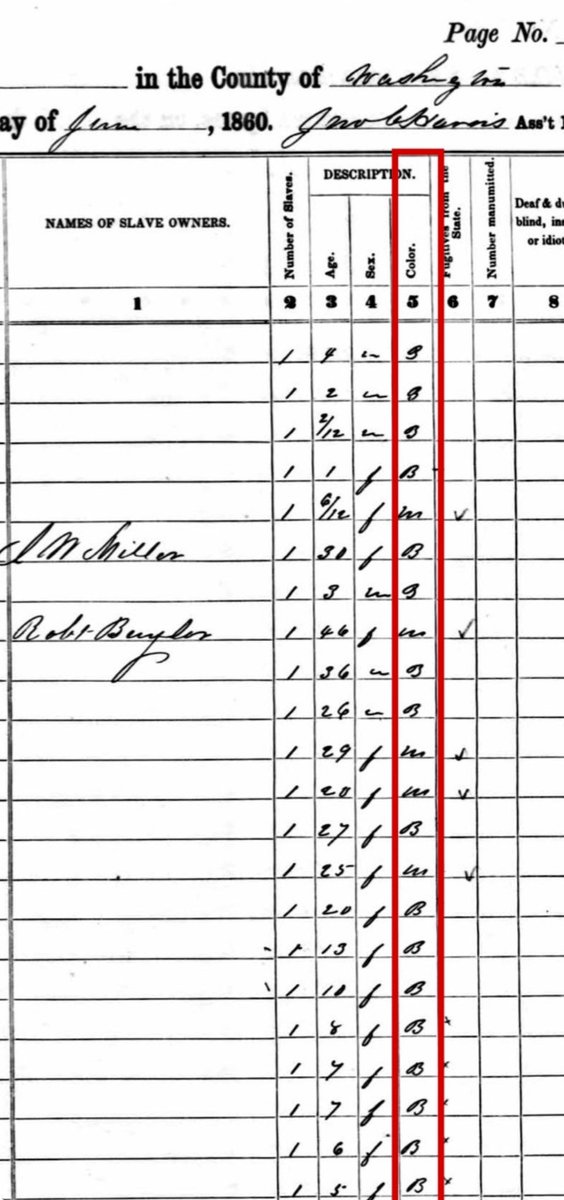 Page No.
in the County of Washington
ay of June , 1860. Jno C Harris Ass't
NAMES OF SLAVE OWNERS. Number of Slaves. DESCRIPTION. Age. Sex. Color. Fugitives from the State. Number manumitted. Deaf & du blind, ins or idiot
1 2 3 4 5 6 7 8
1 4 m B
1 2 m B
1 2/12 m B
1 1 f B
1 6/12 f m ✓
J W Miller 1 30 f B
1 3 m B
Robt 1 46 f m ✓
1 36 m B
1 26 m B
1 29 f m ✓
1 20 f m ✓
1 27 f B
1 25 f m ✓
1 20 f B
1 13 f B
1 10 f B
1 8 f B x
1 7 f B x
1 7 f B
1 6 f B
1 5 f B x